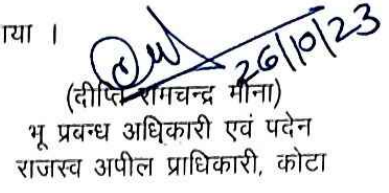 गया ।
26/10/23
(दीप्ति रामचन्द्र मीना)
भू प्रबन्ध अधिकारी एवं पदेन
राजस्व अपील प्राधिकारी, कोटा